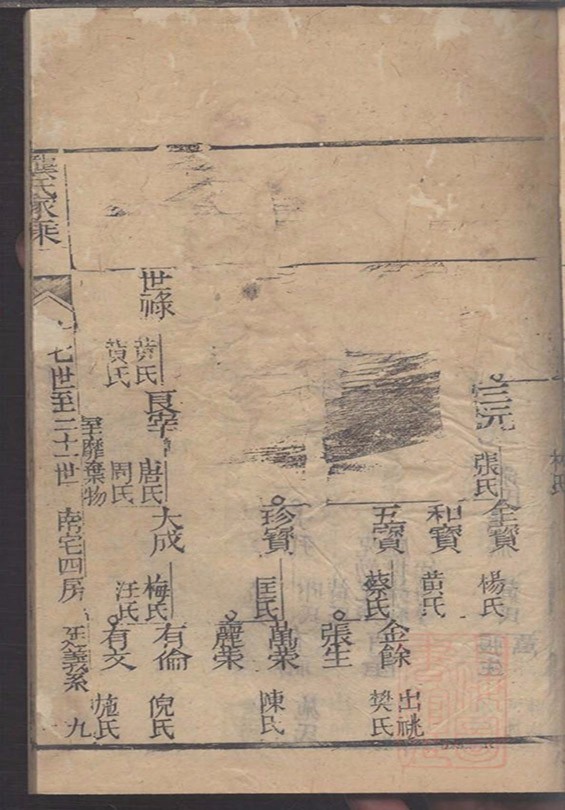 三元
張氏
全寶
楊氏
和寶
黃氏
五寶
蔡氏
金餘
出祧
樊氏
張生
珍寶
匡氏
萬榮
陳氏
麗榮
世祿
黃氏
黃氏
良宰
唐氏
周氏
大成
梅氏
汪氏
有倫
倪氏
有文
施氏
龔氏家乘
七世至二十一世
南宅四房
九